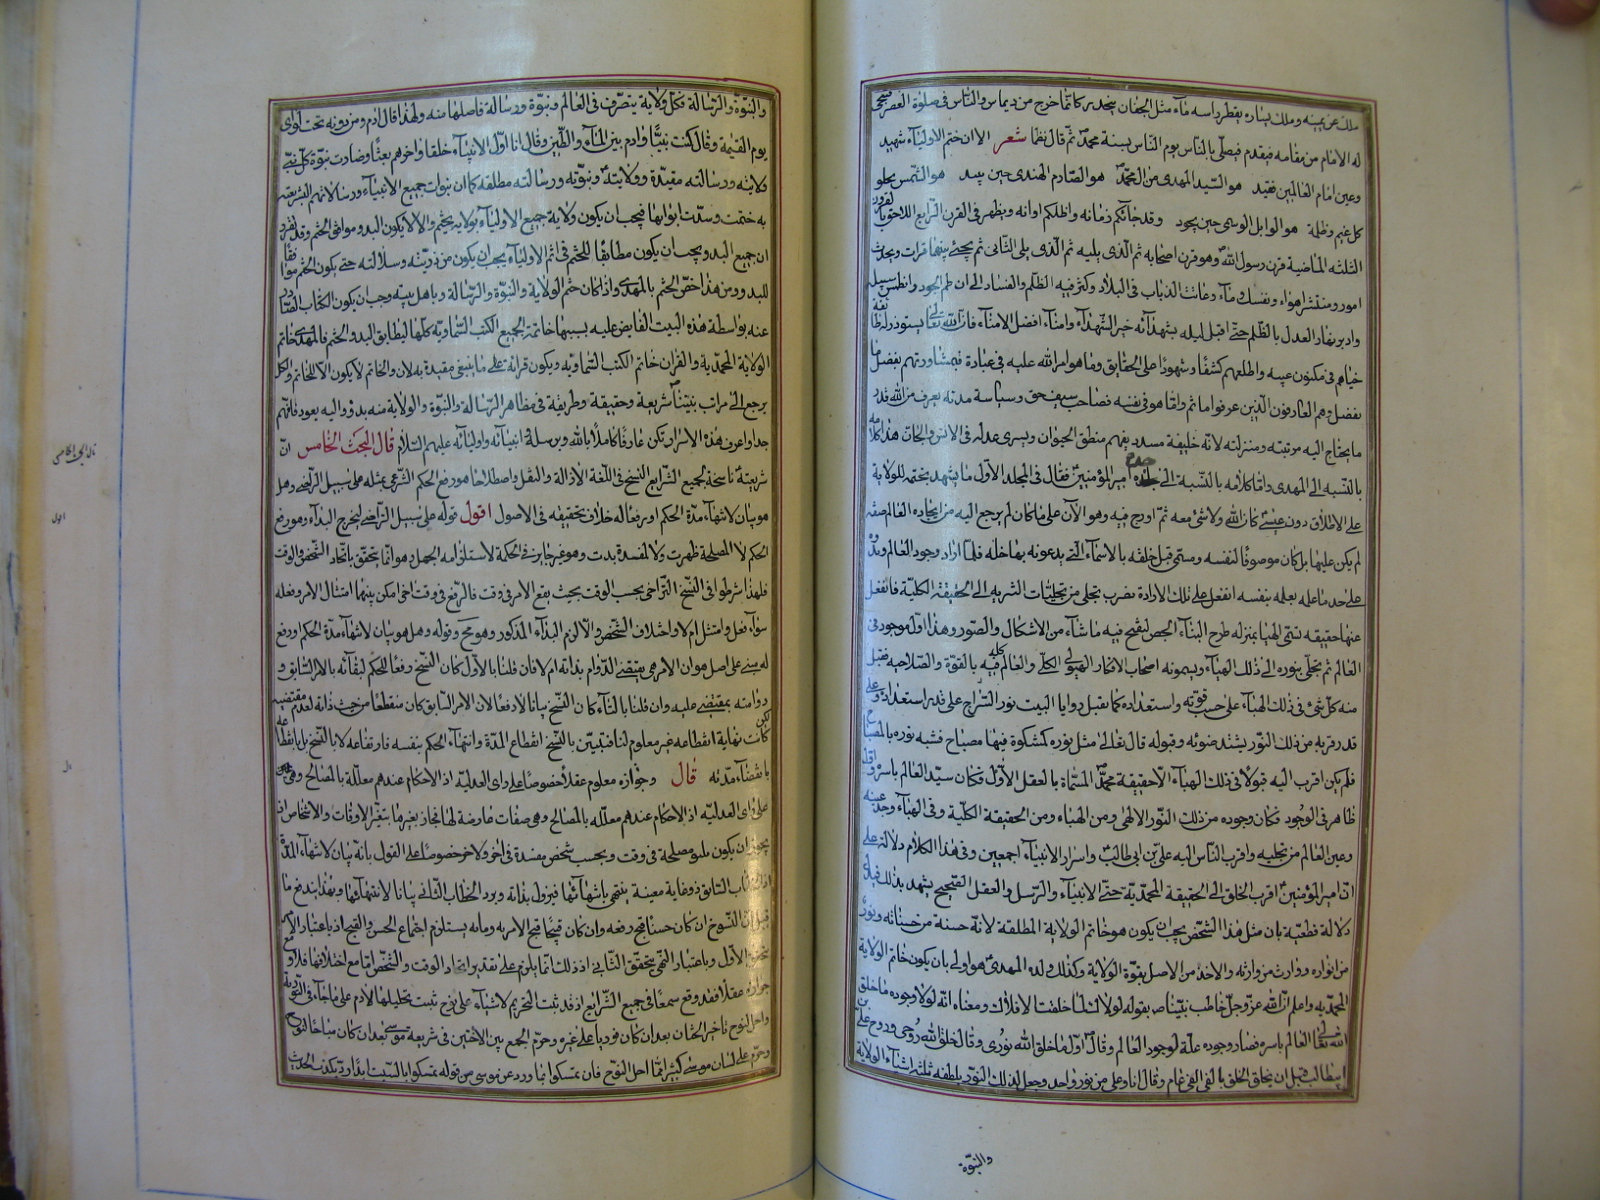 ملك عن يمينه وملك يساره يقطر راسه ماء مثل الجمان يتحدر كانما خرج من ديماس والناس في صلوة العصر فيتنحى
له الامام من مقامه فيقدم فيصلى بالناس يوم الناس بسنة محمد ثم قال نظما شعر الا ان ختم الاولياء شهيد
وعين امام العالمين فقيد هو السيد المهدى من آل محمد هو الصارم الهندى حين يبيد هو الشمس يجلو
كل غيم وظلمة هو الوابل الوسمى حين يجود وقد جاءكم زمانه واظلكم اوانه ويظهر في القرن الرابع اللاحق بالقرون
الثلثه الماضية قرن رسول الله وهو قرن اصحابه ثم الذى يليه ثم الذى يلى الثانى ثم يجئ بينهما فترات ويحدث
امور ومنتشر اهواء وتفسك دماء وعاثت الذياب في البلاد وكثر فيه الظلم والفساد الى ان طم الجور وانطمس سبيله
وادبر نهار العدل بالظلم حتى اقبل ليله شهدائه خير الشهداء وامناءه افضل الامناء فان الله تعالى يستوزر له طائفة
خباهم في مكنون غيبه واطلعهم كشفا وشهودا على الحقايق وما هو امر الله عليه في عباده فبمشاورتهم يفصل ما
يفصل وهم العارفون الذين عرفوا ما ثم واما هو في نفسه فصاحب سيف حق وسياسة مدنه يعرف من الله قدر
ما يحتاج اليه مرتبته ومنزلته لانه خليفة مسدد يفهم منطق الحيوان ويسرى عدله في الانس والجان هذا كلامه
بالنسبه الى المهدى واما كلامه بالنسبة الى جده امير المؤمنين فقال في المجلد الاول ما يشهد بختمه للولاية
على الاطلاق دون عيسى كان الله ولا شئ معه ثم ادرج فيه وهو الآن على ما كان لم يرجع اليه من ايجاده العالم صفة
لم يكن عليها بل كان موصوفا لنفسه ومسمى قبل خلقه بالاسماء التى يدعونه بها خلقه فلما اراد وجود العالم وبدوه
على حد ما علمه بعلمه بنفسه انفعل عن تلك الارادة بضرب تجلى من تجليات التنزيه الى الحقيقة الكلية فانفعل
عنها حقيقة تسمى الهباء بمنزله طرح البناء الجص ليفتح فيه ما شاء من الاشكال والصور وهذا اول موجود في
العالم ثم تجلى بنوره الى ذلك الهباء ويسمونه اصحاب الافكار الهيولى الكلى والعالم كله فيه بالقوة والصلاحية فقبل
منه كل شئ في ذلك الهباء على حسب قوته واستعداده كما يقبل زوايا البيت نور السراج على قدر استعداد وعلى
قدر قربه من ذلك النور يشتد ضوئه وقبوله قال تعالى مثل نوره كمشكوة فيها مصباح فشبه نوره بالمصباح
فلم يكن اقرب اليه قبولا في ذلك الهباء الا حقيقة محمد المسماة بالعقل الاول فكان سيد العالم باسره واول
ظاهر في الوجود فكان وجوده من ذلك النور الالهى ومن الهباء ومن الحقيقة الكلية وفي الهباء وجد عينه
وعين العالم من تجليه واقرب الناس اليه على بن ابى طالب واسرار الانبياء اجمعين وفي هذا الكلام دلالة على
ان امير المؤمنين اقرب الخلق الى الحقيقة المحمدية حتى الانبياء والرسل والعقل الصحيح يشهد بذلك فيدل
دلالة قطعية بان مثل هذا الشخص يجب ان يكون هو خاتم الولاية المطلقة لانه حسنة من حسناته ونور
من انواره ووارث من وارثه والاخذ من الاصل بقوة الولاية وكذلك ولده المهدى هو اولى بان يكون خاتم الولاية
المحمديه واعلم ان الله عز وجل خاطب نبيناص بقوله لولاك لما خلقت الافلاك ومعناه انه لولا وجوده ما خلق
الله تعالى العالم باسره فصار وجوده علة لوجود العالم وقال اول ما خلق الله نورى وقال خلق الله روحى وروح على بن
ابيطالب قبل ان يخلق الخلق بالفى الفى عام وقال انا وعلى من نور واحد وجعل لذلك النور بلطفه ثلثه اشياء الولاية
والنبوة
والنبوة والرسالة فكل ولاية يتصرف في العالم ونبوة ورسالة فاصلها منه ولهذا قال ادم ومن دونه تحت لوائى
يوم القيمة وقال كنت نبيا وادم بين الماء والطين وقال انا اول الانبياء خلقا واخرهم بعثا وصارت نبوة كل نبى
ولايته ورسالته مقيدة وولايته ونبوته ورسالته مطلقه كما ان نبوات جميع الانبياء ورسالاتهم التشريعية
به ختمت وسدت ابوابها فيجب ان يكون ولاية جميع الاولياء بولايه يختم والا لا يكون البدو موافق الختم وقد تقرر
ان جميع البدو يجب ان يكون مطابقا للختم فخاتم الاولياء يجب ان يكون من ذريته وسلالته حتى يكون الختم موافقا
للبدو ومن هذا اخص الختم بالمهدى واذا كان ختم الولاية والنبوة والرسالة وباهل بيته وجب ان يكون الكتاب الصادر
عنه بواسطة هذه البيت الفايض عليه بسببها خاتمة لجميع الكتب السماوية كلها ليطابق البدو والختم فالمهدى خاتم
الولاية المحمدية والقران خاتم الكتب السماويه ويكون قرائته على ما ينبغى مقيدة به لان والخاتم لا يكون الا للخاتم والكل
يرجع الى مراتب نبينا شريعة وحقيقة وطريقة في مظاهر الرسالة والنبوة والولاية منه بدؤ واليه يعود فافهم
جدا واعرف هذه الاسرار تكن عارفا كاملا بالله وبرسله انبيائه واوليائه عليهم السلام قال البحث الخامس ان
شريعته ناسخة لجميع الشرايع النسخ في اللغة الازالة والنقل واصطلاحا هو رفع الحكم الشرعى بمثله على سبيل التراخى وهل
هو بيان لانتهاء مدة الحكم او رفعا له خلاف تحقيقه في الاصول اقول قوله على سبيل التراخى ليخرج البداء وهو رفع
الحكم لا لمصلحة ظهرت ولا لمفسدة بدت وهو غير جايز في الحكمة لاستلزامه الجهل وهو انما يتحقق باتحاد الشخص والوقت
فلهذا شرطوا في النسخ التراخى بحسب الوقت بحيث يقع الامر في وقت فالرفع في وقت اخر امكن بينهما امتثال الامر وفعله
سواء فعل وامتثل ام لا واختلاف الشخص والا لزم البداء المذكور وهو مح وقوله وهل هو بيان لانتهاء مدة الحكم ورفع
له مبنى على اصل هو ان الامر هى يقتضى الدوام بذاته ام لا فان قلنا بالاول كان النسخ رفعا للحكم لبقائه بالامر السابق و
دوامته بمقتضى عليه وان قلنا بالثانى كان النسخ بيانا لا رفعا لان الامر السابق كان منقطعا من حيث ذاته لعدم مقتضيه
لكن كانت نهاية انقطاعه غير معلوم لنا فتبين بالنسخ انقطاع المدة وانتهاء الحكم بنفسه فارتفاعه لا بالنسخ بل بانقطاعه
بانقضاء مدته قال وجوازه معلوم عقلا خصوصا على راى العدلية اذ الاحكام عندهم معللة بالمصالح وهى
على راى العدليه اذ الاحكام عندهم معلله بالمصالح وهى صفات عارضة لها فجاز بغيرها بتغير الاوقات والاشخاص اذ
يجوز ان يكون مصلحة في وقت وبحسب شخص مفسدة في اخر ولاخر خصوصا على القول بانه بيان لانتهاء المدة
السابق ذو غاية معينة ينتهى بانتهائها فيزول بذاته وورد الخطاب الثانى بيانا لانتهائها وبهذا يندفع ما
قيل ان المنسوخ ان كان حسنا قبح رفعه وان كان قبيحا قبح الامر به ومانه يستلزم اجتماع الحسن والقبح اذ باعتبار الامر
تحقق الاول وباعتبار النهى يتحقق الثانى اذ ذلك انما يلزم على تقدير اتحاد الوقت والشخص اما مع اختلافهما فلا ومع
جوازه عقلا فقد وقع سمعا في جميع الشرايع اذ قد ثبت التحريم لاشياء على نوح ثبت تحليلها لادم على ما جاء في التورية
واحل لنوح تاخير الختان بعد ان كان فوريا على غيره وحرم الجمع بين الاختين في شريعة موسى بعد ان كان مباحا لنوح
وحرم على لسان موسى كثير مما احل لنوح فان تمسكوا بما ورد عن موسى من قوله تمسكوا بالسبت ابدا